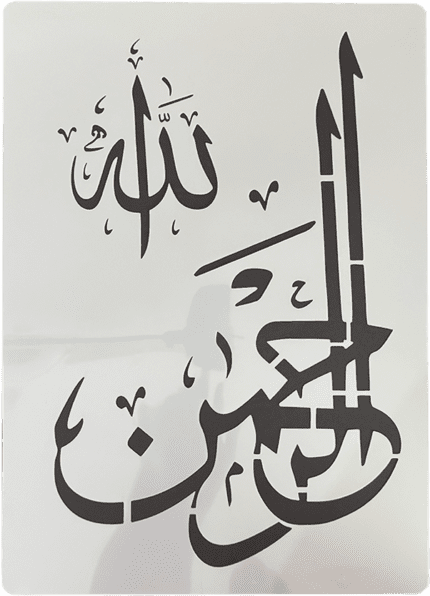 الله
الرحمن